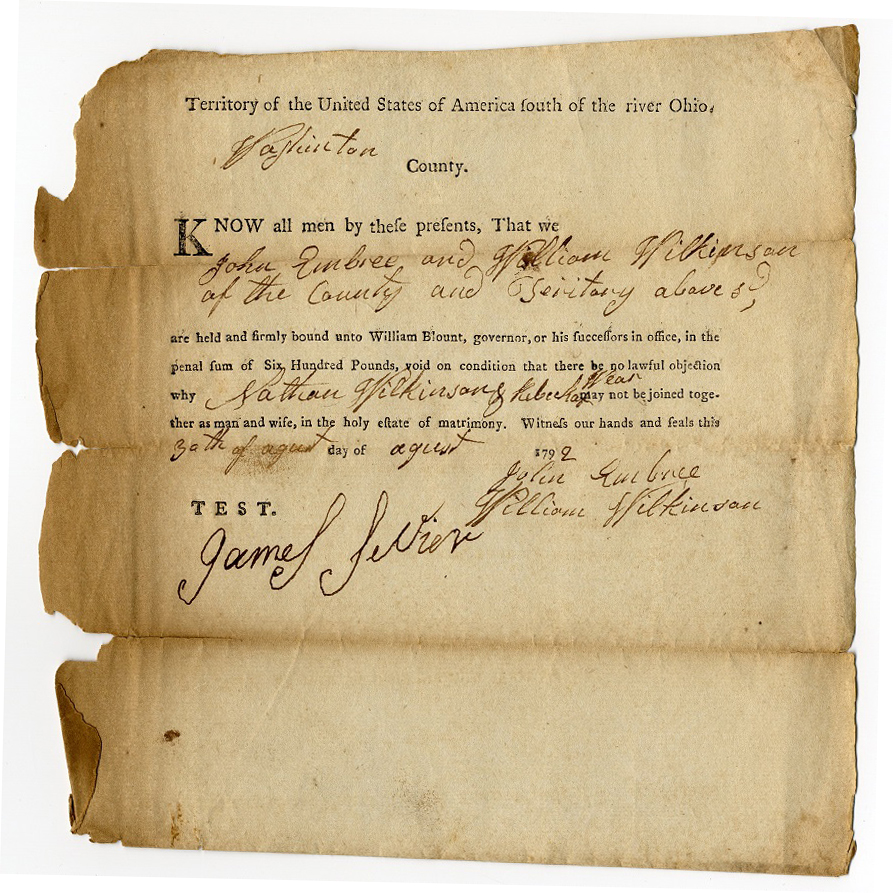 Territory of the United States of America ſouth of the river Ohio.
Waſhinton
County.
KNOW all men by theſe preſents, That we
John Embree and William Wilkinson
of the County and Teritory above sd,
are held and firmly bound unto William Blount, governor, or his ſucceſſors in office, in the
penal ſum of Six Hundred Pounds, void on condition that there be no lawful objection
Wear
why Nathan Wilkinson & Rebeckah may not be joined toge-
ther as man and wife, in the holy eſtate of matrimony. Witneſs our hands and ſeals this
30th of agust day of agust 1792
John Embree
William Wilkinson
TEST.
James Sevier